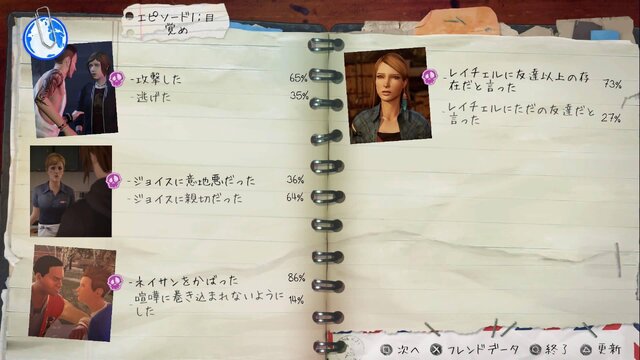 エピソード1;目
覚め
攻撃した 65%
逃げた 35%
ジョイスに意地悪だった 36%
ジョイスに親切だった 64%
ネイサンをかばった 86%
喧嘩に巻き込まれないように 14%
した
レイチェルに友達以上の存
在だと言った 73%
レイチェルにただの友達だと
言った 27%
次へ フレンドデータ 終了 更新